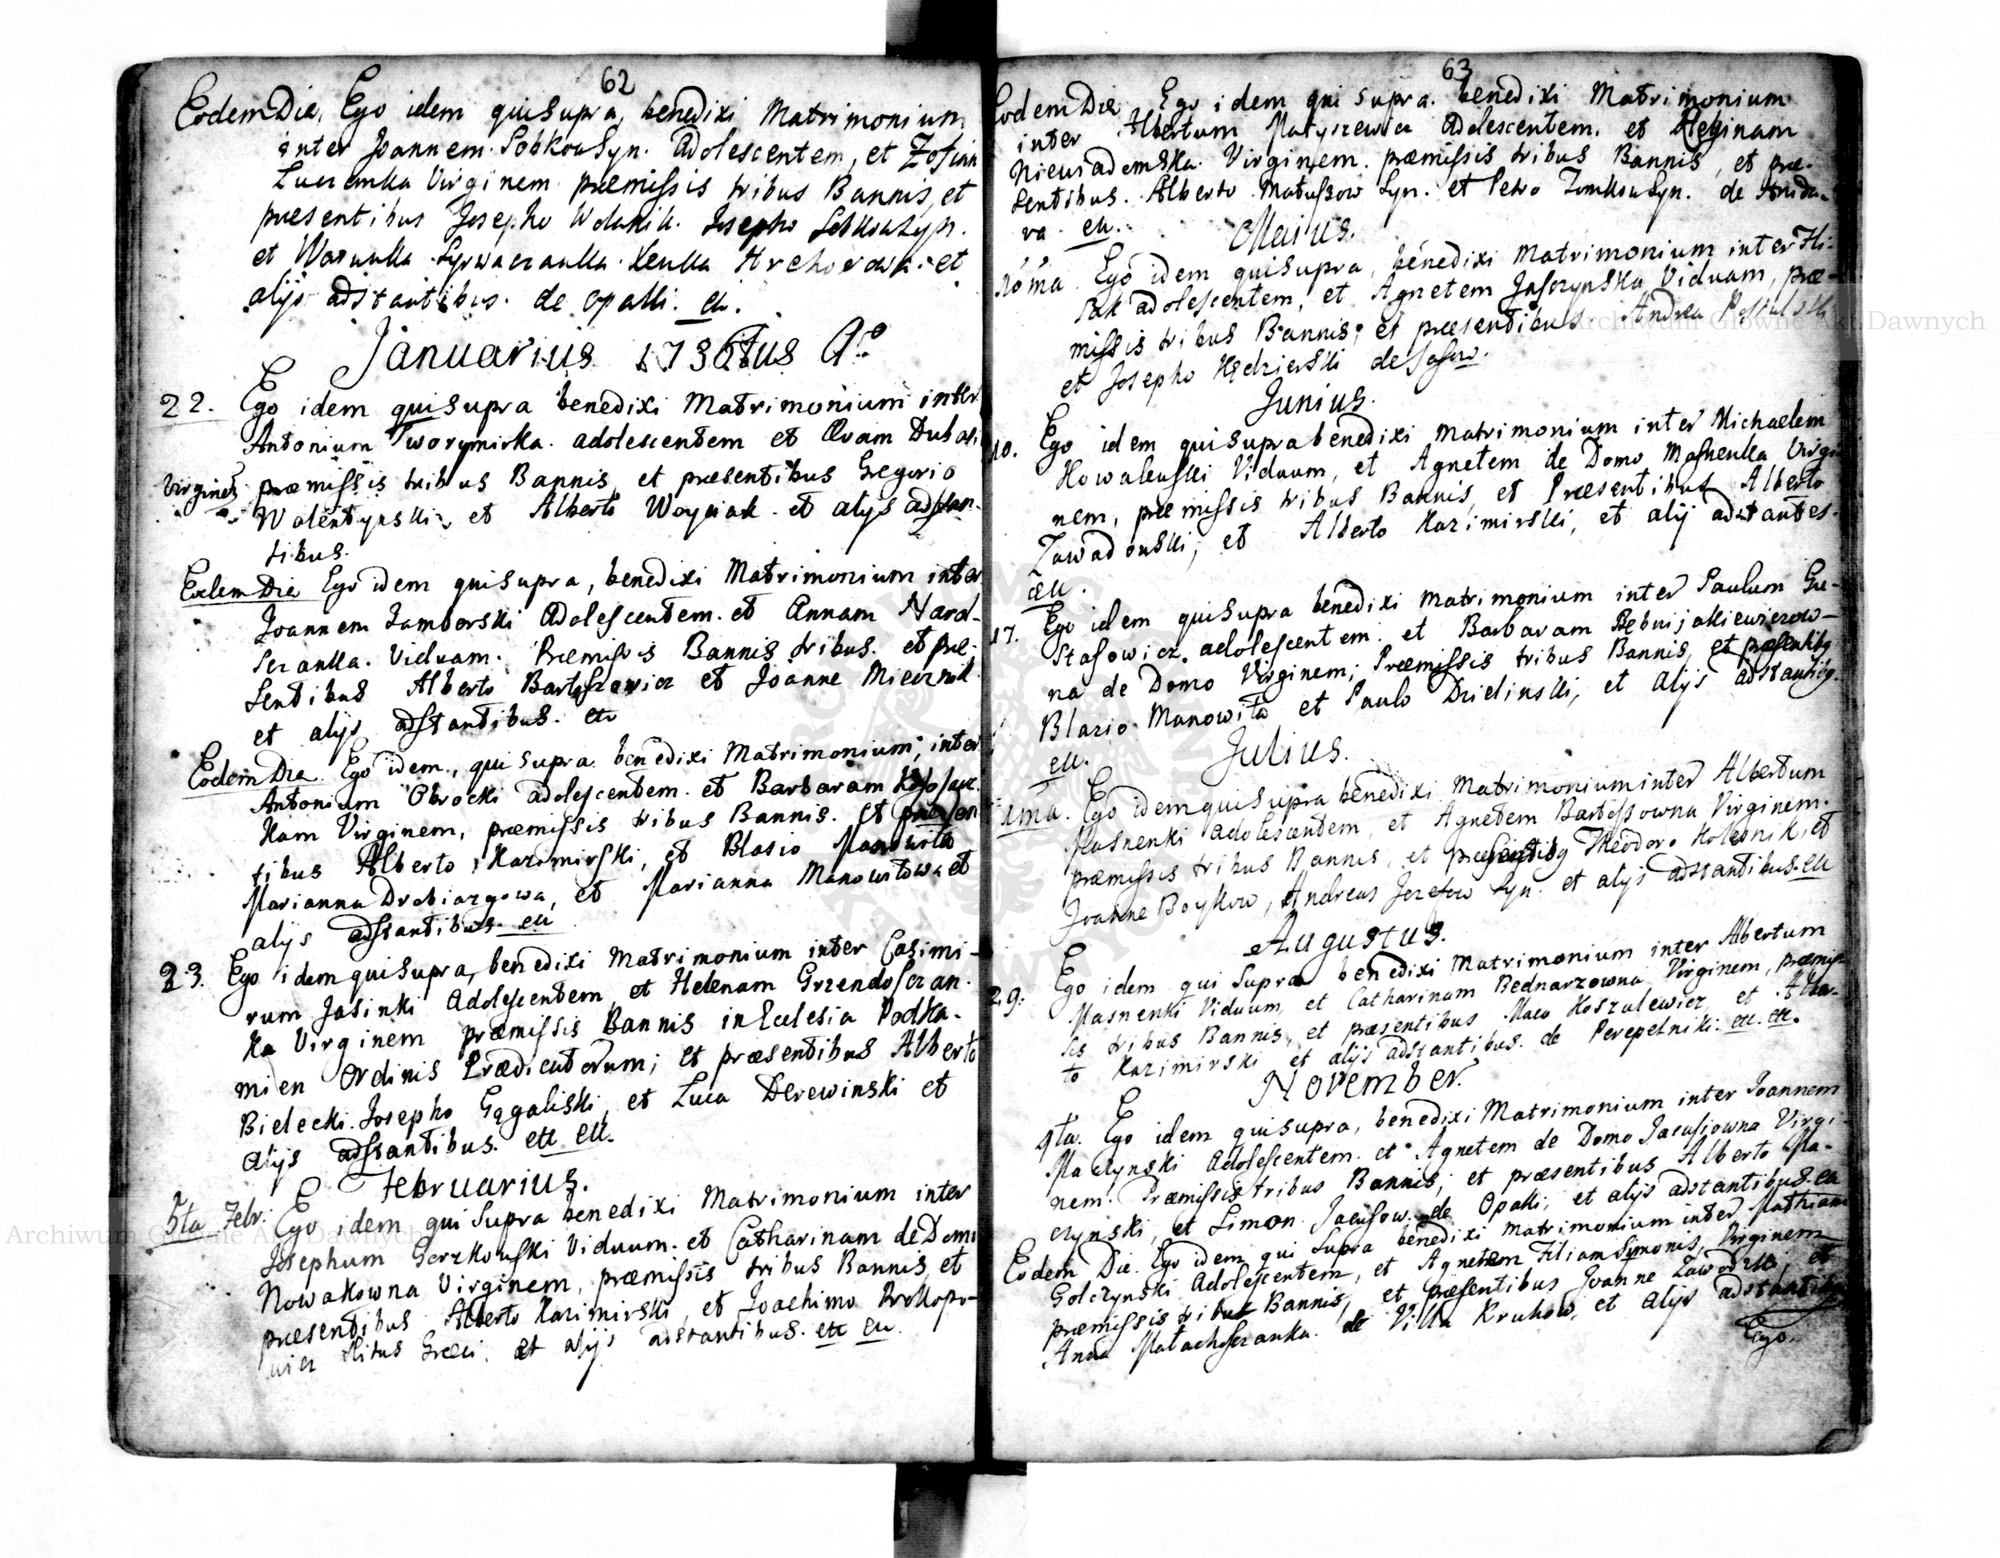 62
Eodem Die, Ego idem qui supra, benedixi Matrimonium
inter Joannem Sobkow Syn. Adolescentem, et Zofiam
Virginem præmissis tribus Bannis, et
præsentibus Josepho Wolanik. Josepho
et
alijs adstantibus. de Opalki. etc.
Januarius 1736tus Ao
22. Ego idem qui supra benedixi Matrimonium inter
Antonium Tworymirka. adolescentem et Evam
Virginem præmissis tribus Bannis, et præsentibus Gregorio
Walentynski, et Alberto Woyciak. et alys adstan-
tibus.
Eodem Die Ego idem qui supra, benedixi Matrimonium inter
Joannem Jamborski Adolescentem. et Annam Nard-
Viduam. Præmissis Bannis tribus. et præ-
sentibus Alberto Bartoszewicz et Joanne Miecznik
et alijs adstantibus. etc
Eodem Die. Ego idem, qui supra benedixi Matrimonium, inter
Antonium Obrocki adolescentem. et Barbaram
kam Virginem, præmissis tribus Bannis. et præsen
tibus Alberto Kazimirski, et Blasio Manowita
Marianna Drabiazgowa, et Marianna Manowitowa et
alijs adstantibus. etc
23. Ego idem qui supra, benedixi Matrimonium inter Casimi-
rum Jasinki Adolescentem, et Helenam Grzendoszan-
ka Virginem præmissis Bannis in Eclesia Podka-
mien Ordinis Prædicatorum; et præsentibus Alberto
Bielecki. Josepho Gągaliski, et Luca Derewinski et
alijs adstantibus. etc etc.
Februarius.
5ta Febr: Ego idem qui Supra benedixi Matrimonium inter
Josephum Gorzkowski Viduum. et Catharinam de Domo
Nowakowna Virginem, præmissis tribus Bannis, et
præsentibus Alberto Kazimirski, et Joachimo Prokopo-
wicz Ritus Græci. et alijs adstantibus. etc etc.
63
Eodem Die. Ego idem qui supra. benedixi Matrimonium
inter Albertum Matyszewicz Adolescentem. et Reginam
Niewiademska Virginem. præmissis tribus Bannis, et præ-
sentibus. Alberto Matuszow Syn. et Petro Tomkow Syn. de
va. etc.
Maius.
Ego idem qui supra, benedixi Matrimonium inter
adolescentem, et Agnetem Jaszczynska Viduam, præ-
missis tribus Bannis; et præsentibus. Andrea
et Josepho Kędzierski de
Junius.
10. Ego idem qui supra benedixi Matrimonium inter Michaelem
Kowalewski Viduum, et Agnetem de Domo Masnenka Virgi
nem, præmissis tribus Bannis, et Præsentibus Alberto
Zawadowski, et Alberto Kazimirski, et alij adstantes.
etc.
17. Ego idem qui supra benedixi Matrimonium inter Paulum Gu-
stasowicz. adolescentem. et Barbaram
na de Domo Virginem; Præmissis tribus Bannis, et præsentibus
Blazio Manowita et Paulo Dzielinski, et alijs adstantibus.
etc.
Julius.
1ma. Ego idem qui supra benedixi Matrimonium inter Albertum
Masnenki adolescentem, et Agnetem Bartossowna Virginem.
præmissis tribus Bannis, et præsentibus Theodoro Kolesnik, et
Joanne Boykow, Andreas Jozefow Syn. et alijs adstantibus. etc
Augustus.
29. Ego idem qui Supra benedixi Matrimonium inter Albertum
Masnenki Viduum, et Catharinam Bednarzowna Virginem, præmis-
sis tribus Bannis, et præsentibus Maco Koszulewicz, et Alber-
to Kazimirski et alijs adstantibus. de Perepelniki. etc. etc.
November.
4ta. Ego idem qui supra, benedixi Matrimonium inter Joannem
Maczynski Adolescentem. et Agnetem de Domo Jacusiowna Virgi-
nem. Præmissis tribus Bannis; et præsentibus Alberto Ma-
czynski, et Simon Jacusow. de Opalki, et alijs adstantibus. etc
Eodem Die. Ego idem, qui Supra benedixi Matrimonium inter Mathiam
Golczynski Adolescentem, et Agnetem Filiam Simonis, Virginem
præmissis tribus Bannis, et præsentibus Joanne Zawodzki, et
Anna Malachoszanka. de Villa Kruhow, et alijs adstantibus
Ego.
Archiwum Główne Akt Dawnych
Archiwum Główne Akt Dawnych